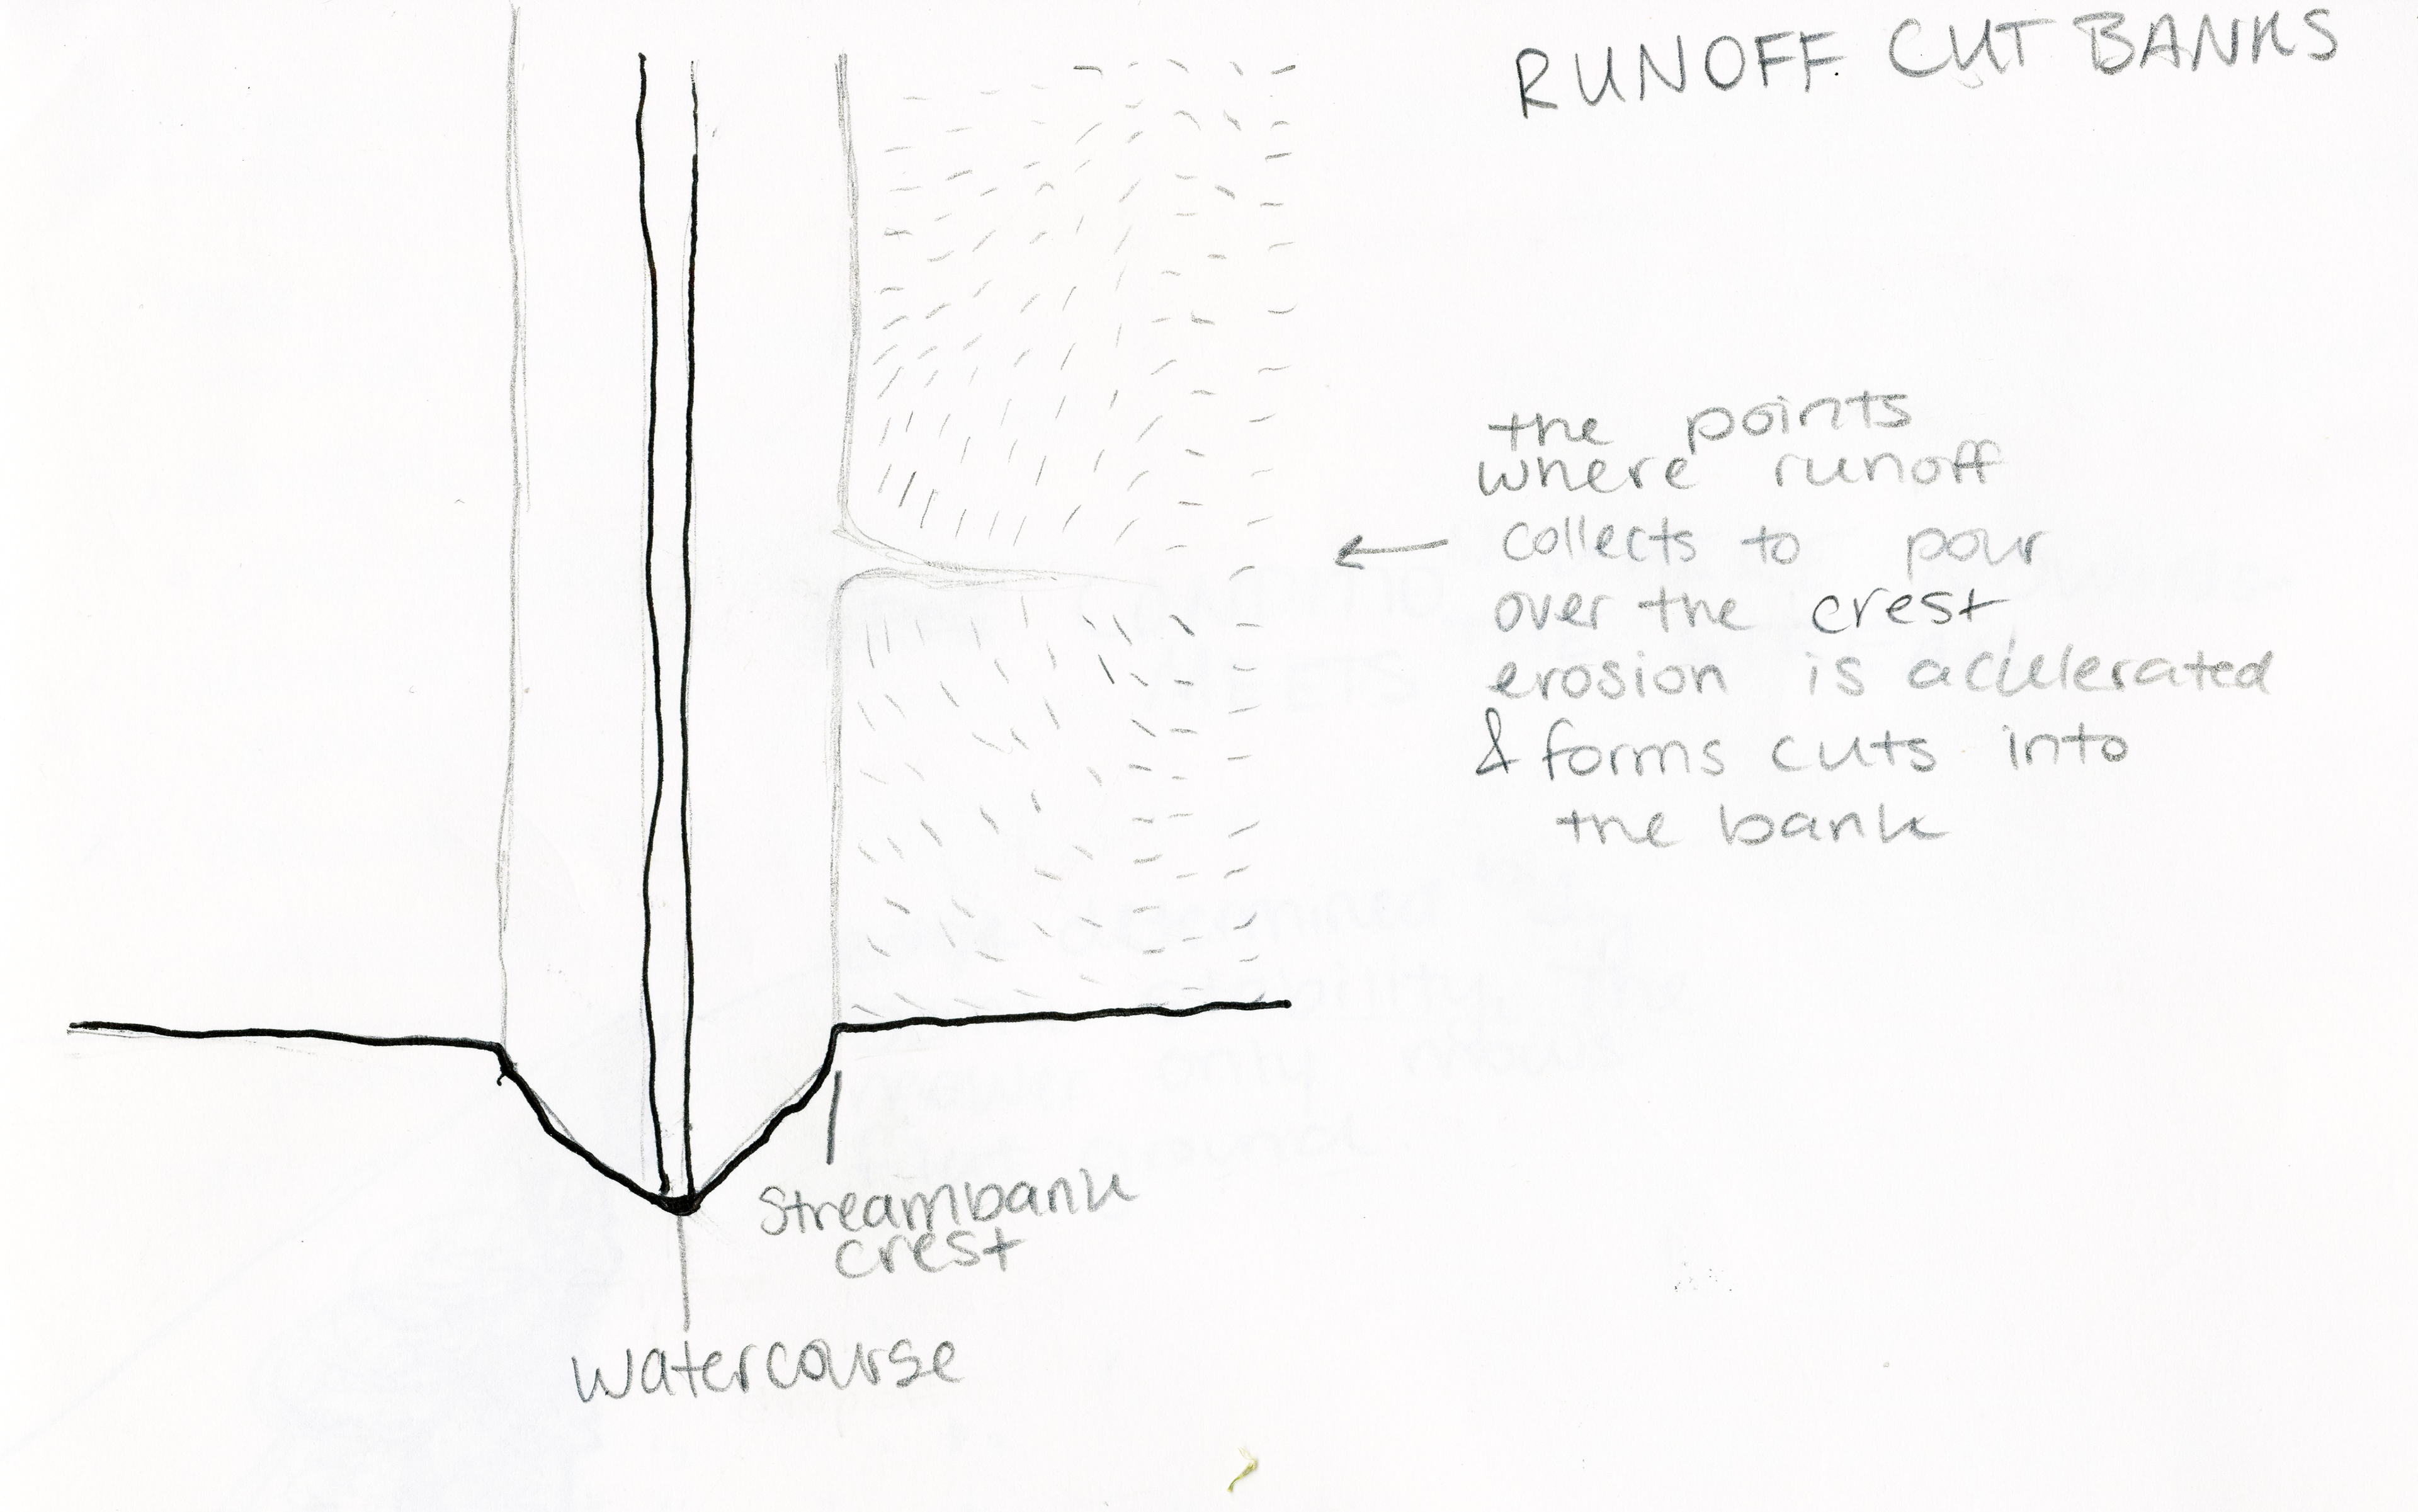 RUNOFF CUT BANKS
the points
where runoff
collects to pour
over the crest
erosion is acculerated
& forms cuts into
the bank
Streambank
crest
watercourse